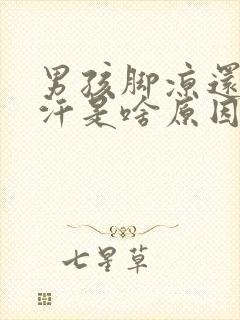 男孩脚凉還
汗是啥原因
七星草